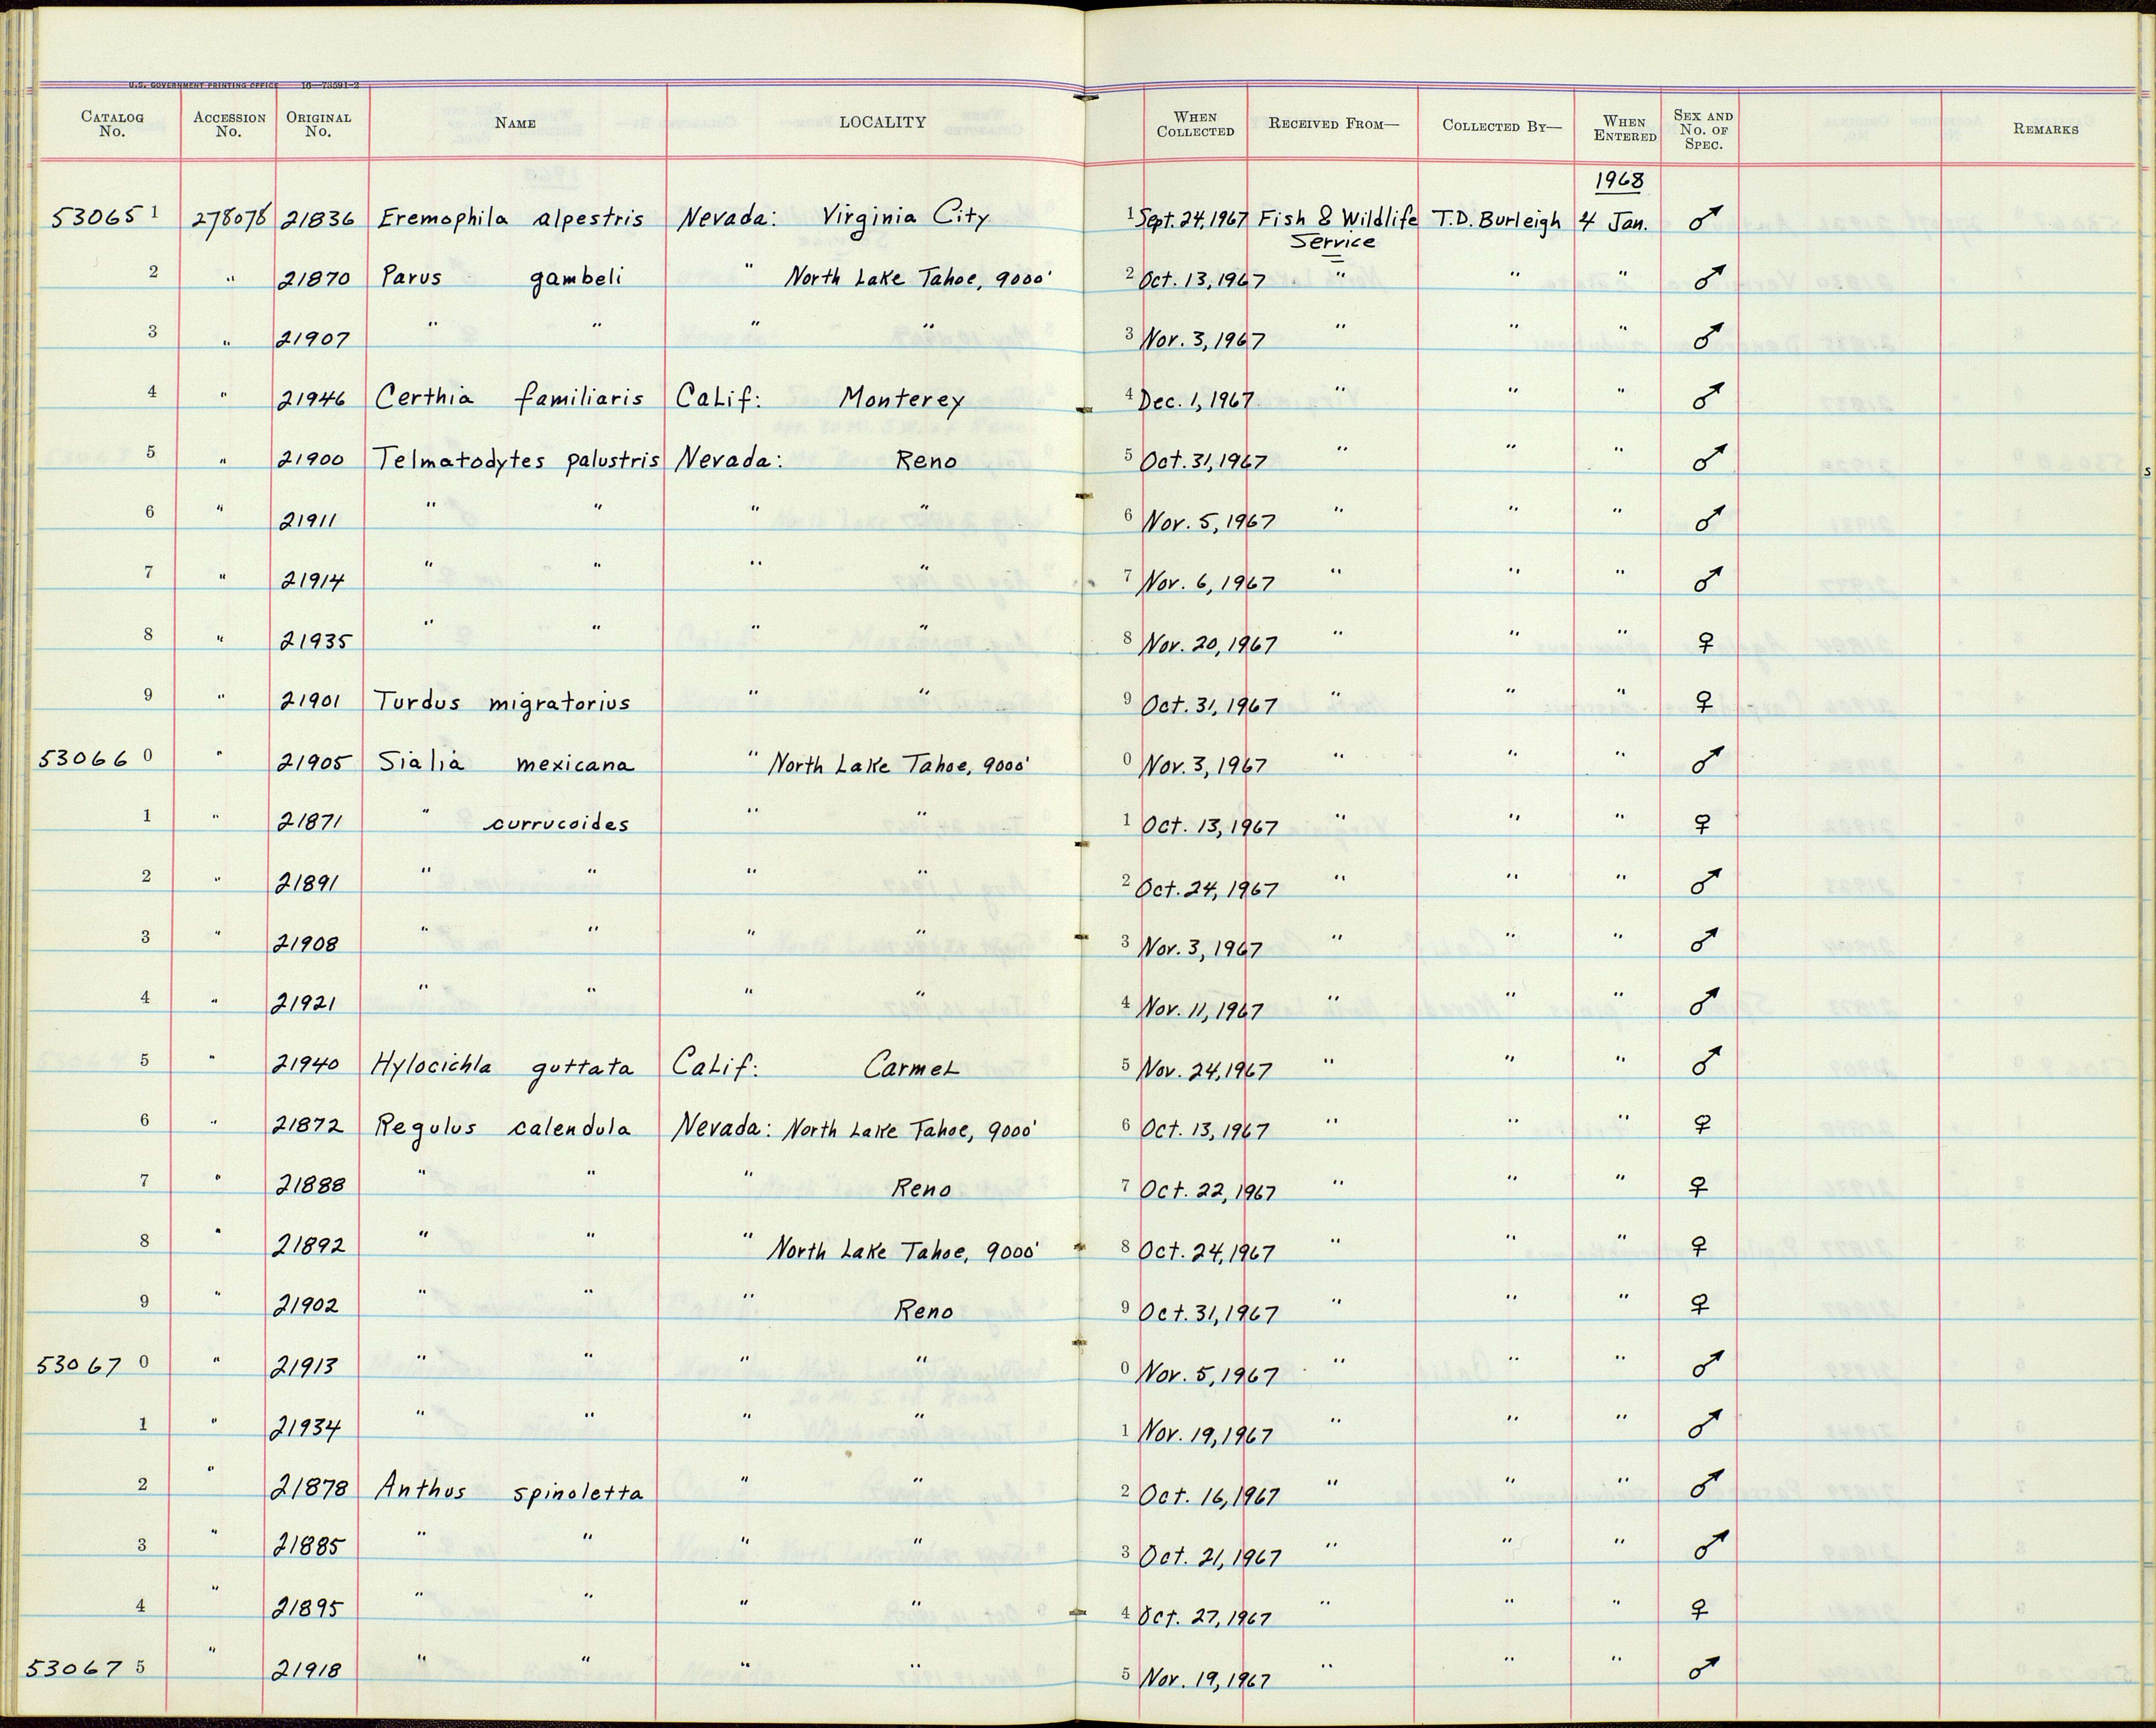 U.S. GOVERNMENT PRINTING OFFICE 16—73591-2
CATALOG No. ACCESSION No. ORIGINAL No. NAME LOCALITY WHEN COLLECTED RECEIVED FROM— COLLECTED BY— WHEN ENTERED SEX AND No. OF SPEC. REMARKS
1968
53065 1 278078 21836 Eremophila alpestris Nevada: Virginia City 1 Sept. 24, 1967 Fish & Wildlife T.D. Burleigh 4 Jan. ♂
Service
2 " 21870 Parus gambeli " North Lake Tahoe, 9000' 2 Oct. 13, 1967 " " " ♂
3 " 21907 " " " " 3 Nov. 3, 1967 " " " ♂
4 " 21946 Certhia familiaris Calif: Monterey 4 Dec. 1, 1967 " " " ♂
5 " 21900 Telmatodytes palustris Nevada: Reno 5 Oct. 31, 1967 " " " ♂
6 " 21911 " " " " 6 Nov. 5, 1967 " " " ♂
7 " 21914 " " " " 7 Nov. 6, 1967 " " " ♂
8 " 21935 " " " " 8 Nov. 20, 1967 " " " ♀
9 " 21901 Turdus migratorius " " 9 Oct. 31, 1967 " " " ♀
53066 0 " 21905 Sialia mexicana " North Lake Tahoe, 9000' 0 Nov. 3, 1967 " " " ♂
1 " 21871 " currucoides " " 1 Oct. 13, 1967 " " " ♀
2 " 21891 " " " " 2 Oct. 24, 1967 " " " ♂
3 " 21908 " " " " 3 Nov. 3, 1967 " " " ♂
4 " 21921 " " " " 4 Nov. 11, 1967 " " " ♂
5 " 21940 Hylocichla guttata Calif: Carmel 5 Nov. 24, 1967 " " " ♂
6 " 21872 Regulus calendula Nevada: North Lake Tahoe, 9000' 6 Oct. 13, 1967 " " " ♀
7 " 21888 " " " Reno 7 Oct. 22, 1967 " " " ♀
8 " 21892 " " " North Lake Tahoe, 9000' 8 Oct. 24, 1967 " " " ♀
9 " 21902 " " " Reno 9 Oct. 31, 1967 " " " ♀
53067 0 " 21913 " " " " 0 Nov. 5, 1967 " " " ♂
1 " 21934 " " " " 1 Nov. 19, 1967 " " " ♂
2 " 21878 Anthus spinoletta " " 2 Oct. 16, 1967 " " " ♂
3 " 21885 " " " " 3 Oct. 21, 1967 " " " ♂
4 " 21895 " " " " 4 Oct. 27, 1967 " " " ♀
53067 5 " 21918 " " " " 5 Nov. 19, 1967 " " " ♂